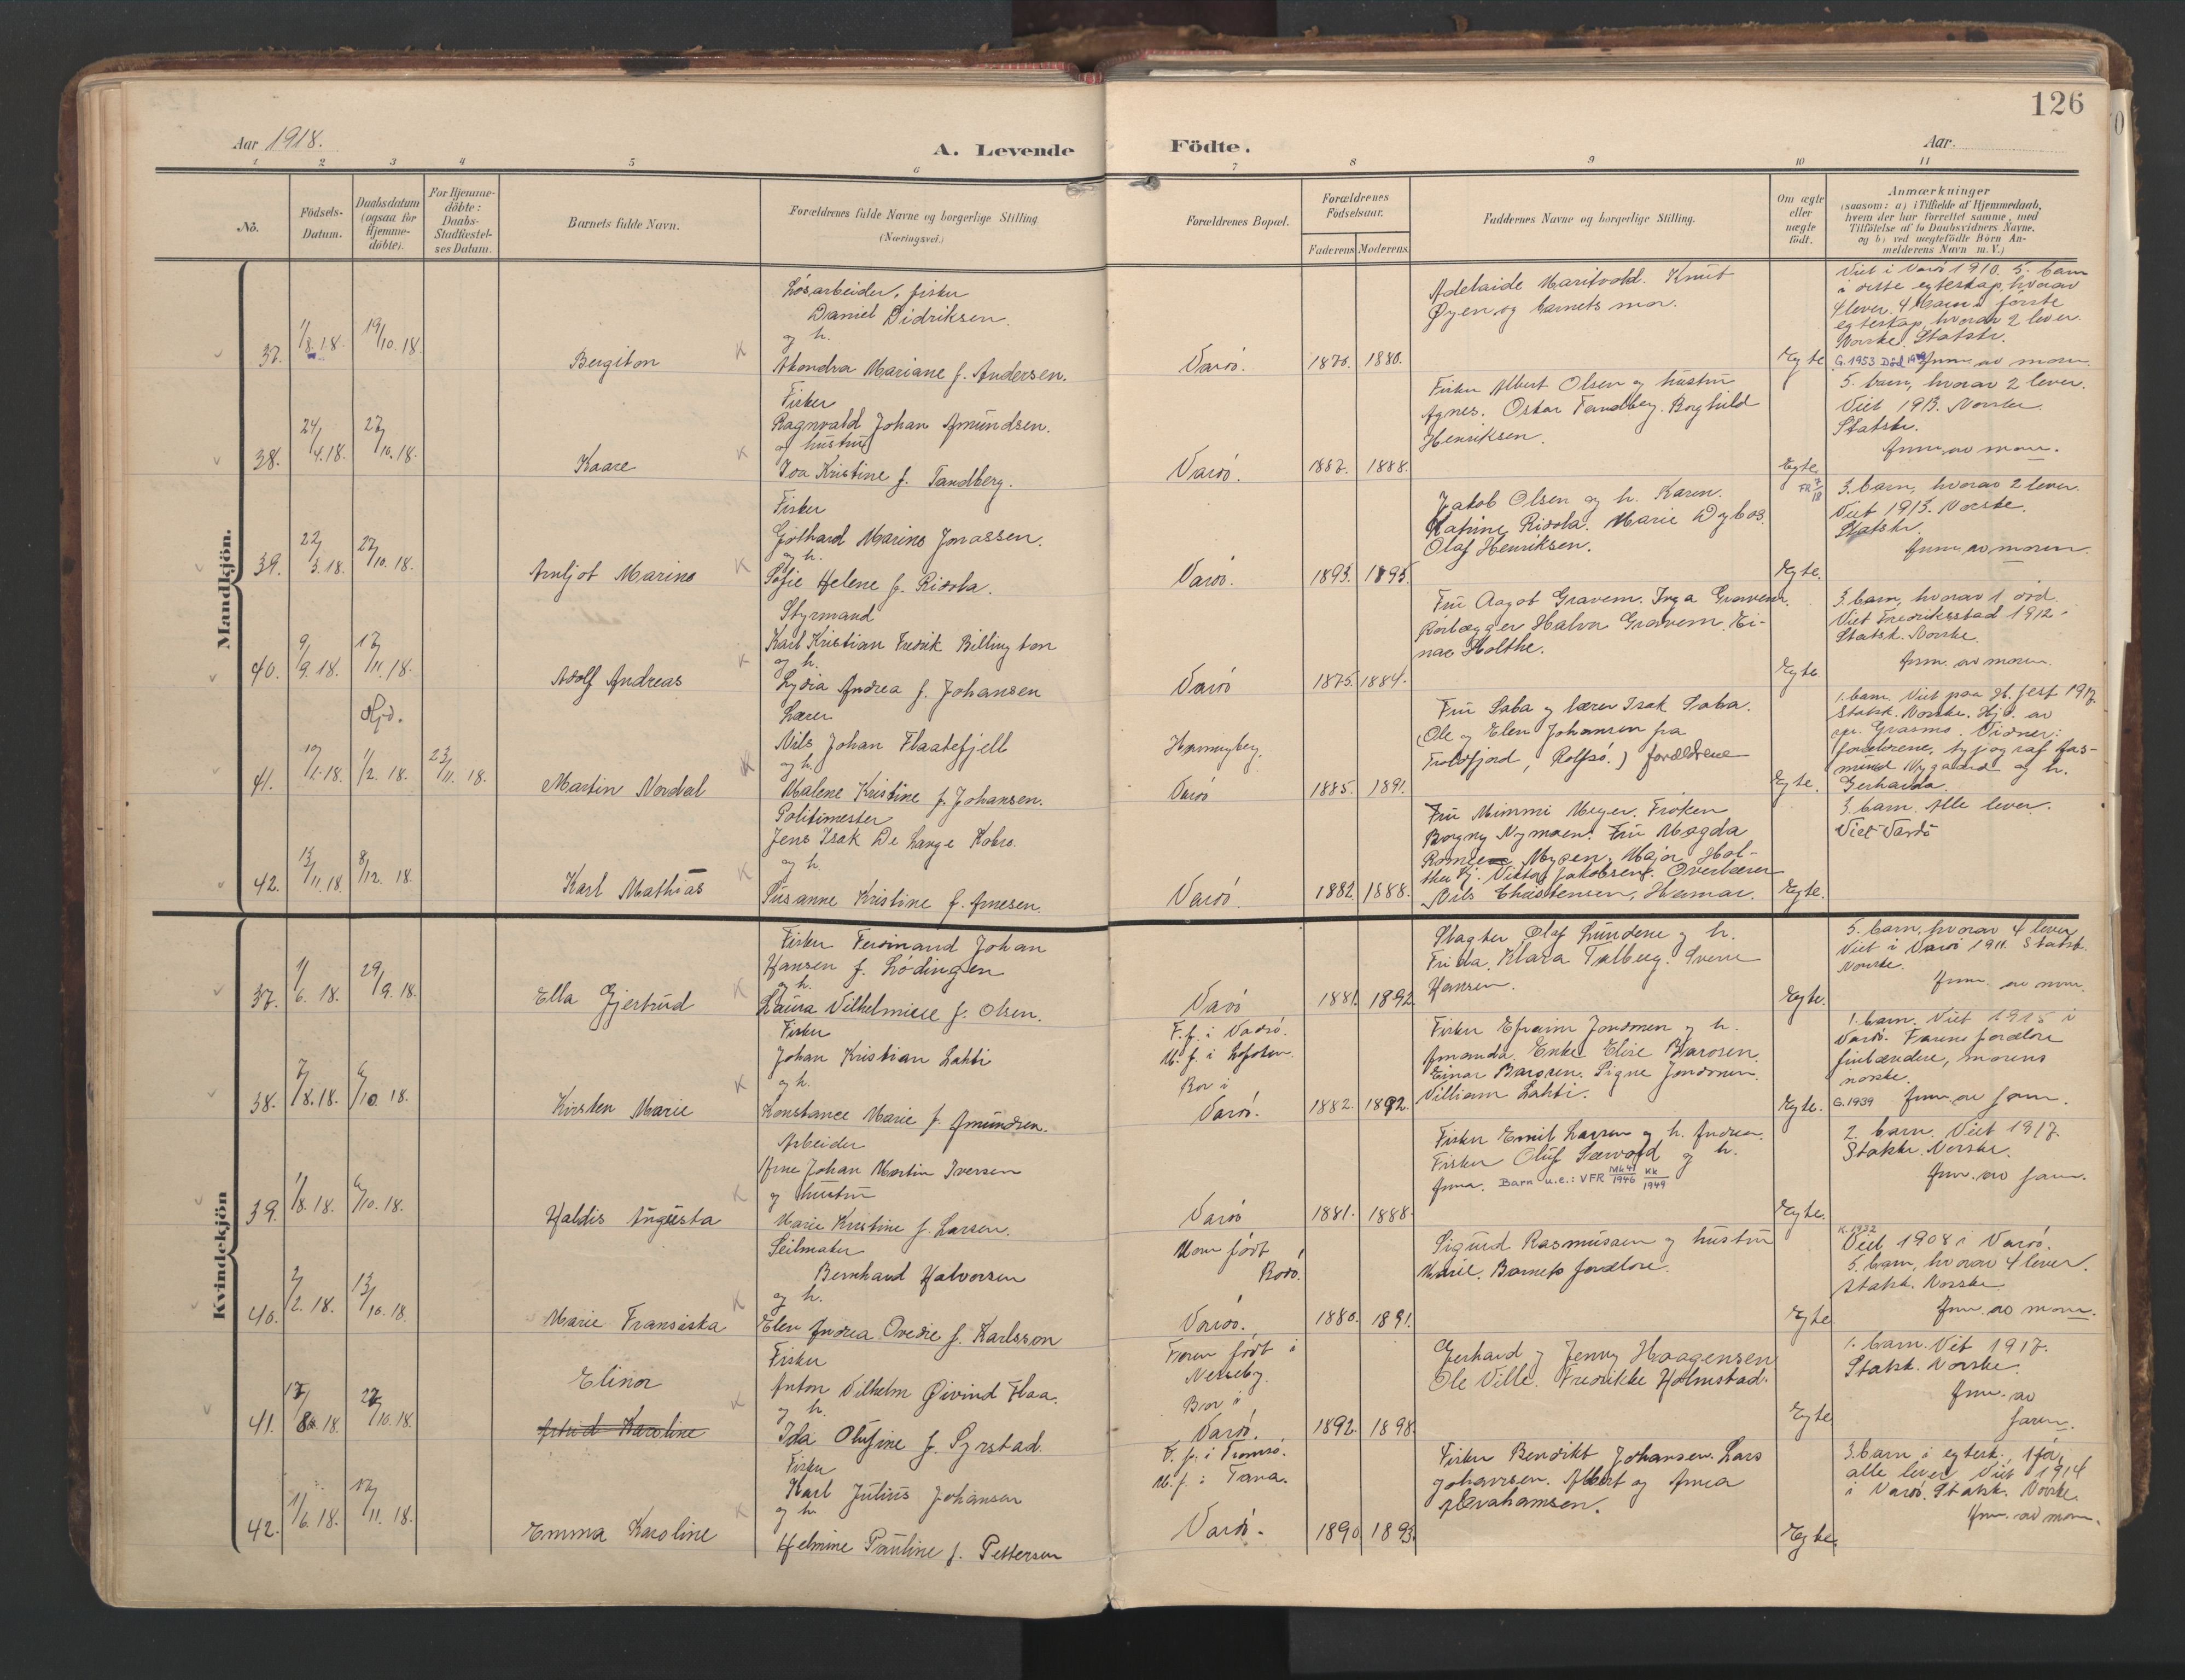 126
Aar 1918.
A. Levende Födte.
Aar
1 2 3 4 5 6 7 8 9 10 11
No.
Födsels-
Datum.
Daabsdatum
(ogsaa for
Hjemme-
döbte).
For Hjemme-
döbte:
Daabs-
Stadfæstel-
ses Datum.
Barnets fulde Navn.
Forældrenes fulde Navne og borgerlige Stilling
(Næringsvei.)
Forældrenes Bopæl.
Forældrenes
Födselsaar.
Faderens Moderens
Faddernes Navne og borgerlige Stilling.
Om ægte
eller
uægte
födt.
Anmærkninger
(saasom: a) i Tilfælde af Hjemmedaab,
hvem der har forrettet samme, med
Tilföielse af to Daabsvidners Navne.
og b) ved uægtefödte Börn An-
melderens Navn m. V.)
Mandkjön.
37.
1/8.18.
19/10.18.
Bergiton
Løsarbeider, fisker
Daniel Didriksen
og h.
Mariane f. Andersen.
Vardö.
1880.
Adelaide Maritvold. Knut
Øyen og barnets mor.
Egte
Viet i Vardö 1910. 5. barn
i dette egteskap, hvorav
4 lever. 4 barn i förste
egteskap, hvorav 2 lever.
Norske. Statsk.
G. 1953 Död
Anm. av moren.
38.
24/4.18.
27/10.18.
Kaare
Fisker
Ragnvald Johan Amundsen.
og hustru
Ida Kristine f. Tandberg.
Vardö.
1887. 1888.
Fisker Albert Olsen og hustru
Agnes. Oskar Tandberg. Borghild
Henriksen.
Egte.
5. barn, hvorav 2 lever.
Viet 1913. Norske.
Statsk.
Anm. av moren.
39.
22/3.18.
27/10.18.
Arnljot Marino
Fisker
Gjöthard Marino Jonassen.
og h.
Sofie Helene f. Ridola.
Vardö.
1893. 1895.
Jakob Olsen og h. Karen.
Katrine Ridola. Marie
Olaf Henriksen.
Egte.
FR 7/18
3. barn, hvorav 2 lever.
Viet 1913. Norske.
Statsk.
Anm. av moren.
40.
9/9.18.
17/11.18.
Adolf Andreas
Styrmand
Karl Kristian Fredrik Billington
og h.
Lydia Andrea f. Johansen
Vardö
1875. 1884.
Fru Aagot Gravem. Inga Gravem.
Rørlægger Halvor Gravem. Ei-
nar Holthe.
Egte
3. barn, hvorav 1 död.
Viet Fredriksstad 1912.
Statsk. Norske.
Anm. av moren.
41.
1/2.18.
Hjd.
23/11.18.
Martin Nordal
Lærer
Nils Johan Flaatefjell
og h.
Malene Kristine f. Johansen.
Hamningberg.
Vardö
1885. 1891.
Fru Saba og lærer Isak Saba.
(Ole og Elen Johansen fra
Troldfjord, Rolfsö.) forældrene
Egte.
1. barn. Viet paa H.fest 1917.
Statsk. Norske. Hjd. av
spr. Grasmo. Vidner:
forældrene, typograf Ras-
mus Nygaard og h.
Gerharda.
42.
13/11.18.
8/12.18
Karl Mathias
Politimester
Jens Isak De Lange Kobro.
og h.
Susanne Kristine f. Arnesen.
Vardö.
1882. 1888.
Fru Mimmi Meyer. Fröken
Borgny Nymoen. Fru Magda
Major Hol-
the. Viktor Jakobsen. Overlærer
Nils Christensen, Hamar.
Egte.
3. barn. Alle lever.
Viet Vardö
Kvindekjön
37.
1/6.18.
29/9.18.
Ella Gjertrud
Fisker Ferdinand Johan
Hansen f. Lødingen
og h.
Laura Vilhelmine f. Olsen.
Vardö
1881. 1892.
Slagter Olaf Lundene og h.
Frida. Klara Talberg. Sverre
Hansen.
Egte.
5. barn, hvorav 4 lever.
Viet i Vardö 1911. Statsk.
Norske.
Anm. av mor.
38.
7/8.18.
6/10.18.
Kirsten Marie
Fisker
Johan Kristian Lahti
og h.
Konstance Marie f. Amundsen.
F. f. i Vadsö.
M. f. i Lofoten.
Bor i
Vardö.
1882. 1892.
Fisker Efraim og h.
Amanda. Enke Elise Bardsen.
Einar Bardsen. Signe
Villiam Lahti.
Egte.
1. barn. Viet 1915 i
Vardö. Farens forældre
finlændere, morens
norske.
G. 1939 Anm. av faren.
39.
1/8.18.
6/10.18.
Haldis Augusta
Arbeider
Arne Johan Martin Iversen
og hustru
Marie Kristine f. Larsen.
Vardö
1881. 1888.
Fisker Emil Larsen og h. Andrea.
Fisker Oluf og h.
Anna. Barn u.e.: VFR Mk41/1946 Kk/1949
Egte.
2. barn. Viet 1917.
Statsk. Norske.
Anm. av faren.
40.
2/2.18.
13/10.18.
Marie Fransiska
Seilmaker
Bernhard Halvorsen
og h.
Elen Andrea Ovedie f. Karlsson
Mor födt
Bodö.
Vardö.
1880. 1891.
Sigurd Rasmussen og hustru
Marie. Barnets forældre.
Egte
K. 1932
Viet 1908 i Vardö.
5. barn, hvorav 4 lever.
Statsk. Norske.
Anm. av moren.
41.
17/8.18.
27/10.18.
Elinor
Astrid Karoline
Fisker
Anton Vilhelm Øivind Haa.
og h.
Ida Olufine f. Syrstad.
Faren födt i
Nesseby.
Bor i
Vardö.
1892. 1898.
Gerhard og Jenny Haagensen
Ole Ville. Fredrikke Holmstad.
Egte
1. barn. Viet 1917.
Statsk. Norske.
Anm. av
faren.
42.
1/6.18.
17/11.18.
Emma Karoline
Fisker
Karl Julius Johansen
og h
Helmine Pauline f. Pettersen
F. f. i Tromsö.
M. f. i Tana.
Vardö.
1890 1893.
Fisker Bendikt Johansen. Lars
Johansen. Albert og Anna
Abrahamsen.
Egte.
3. barn i egtesk., 1 för,
alle lever. Viet 1914
i Vardö. Statsk. Norske.
Anm. av moren.